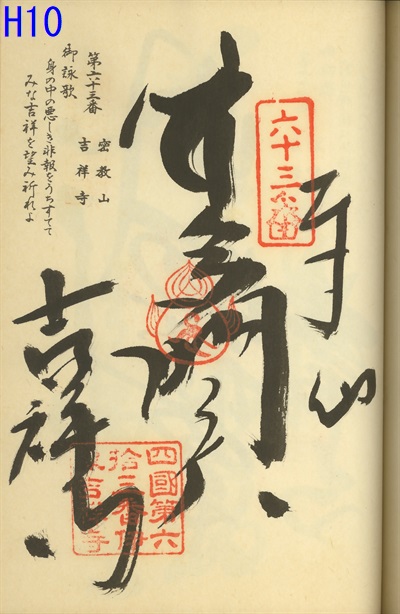 H10
奉
六十三番
毘沙門天
第六十三番
密教山
吉祥寺
御詠歌
身の中の悪しき非報をうちすてて
みな吉祥を望み祈れよ
吉祥寺
四國第六
拾三番